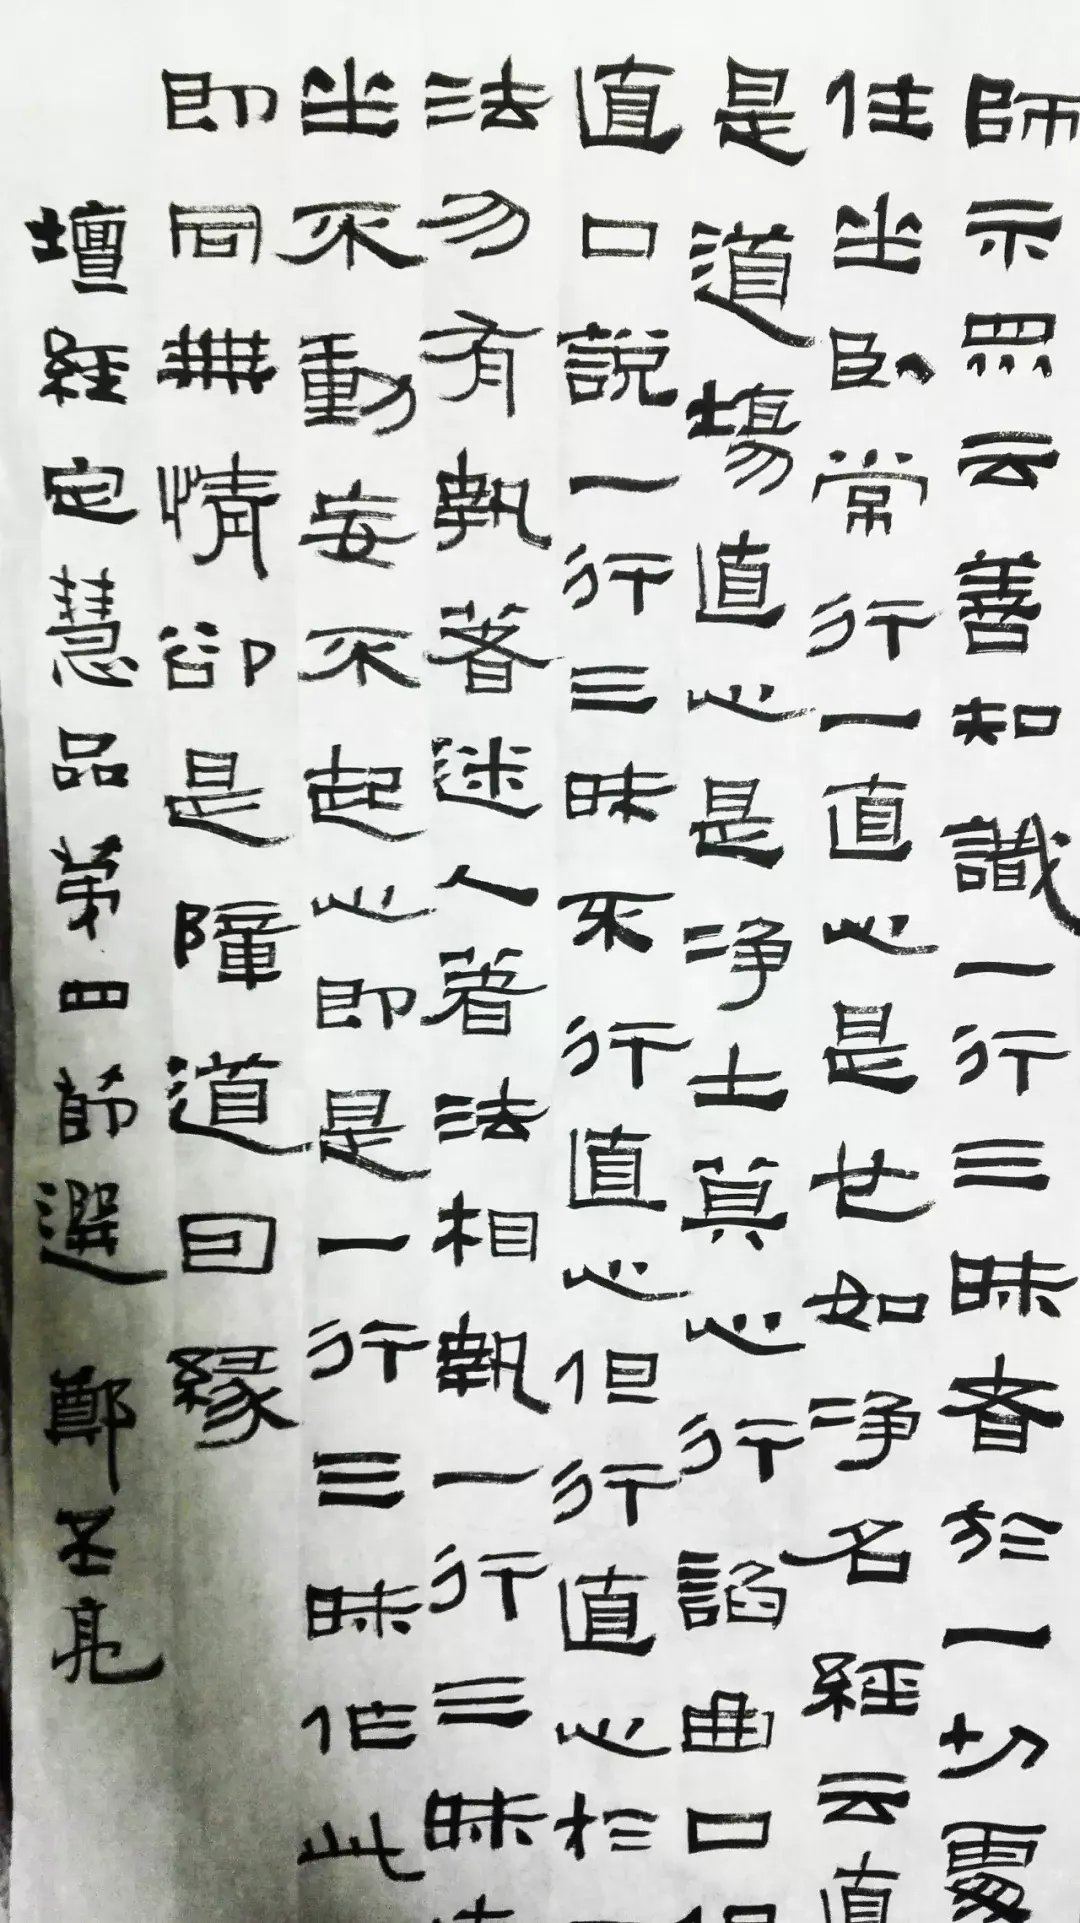 師示眾云善知識一行三昧者於一切處
住坐臥常行一直心是也如净名經云直
是道場直心是净土莫心行諂曲口但
直口說一行三昧不行直心但行直心於一
法勿有執著迷人著法相執一行三昧直
坐不動妄不起心即是一行三昧作此
即同無情卻是障道因緣
壇經定慧品第四節選 鄭圣亮